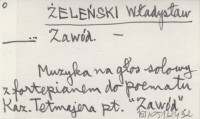 ŻELEŃSKI Władysław
... Zawód. —
Muzyka na głos solowy
z fortepianem do poematu
Kaz. Tetmajera pt. "Zawód"